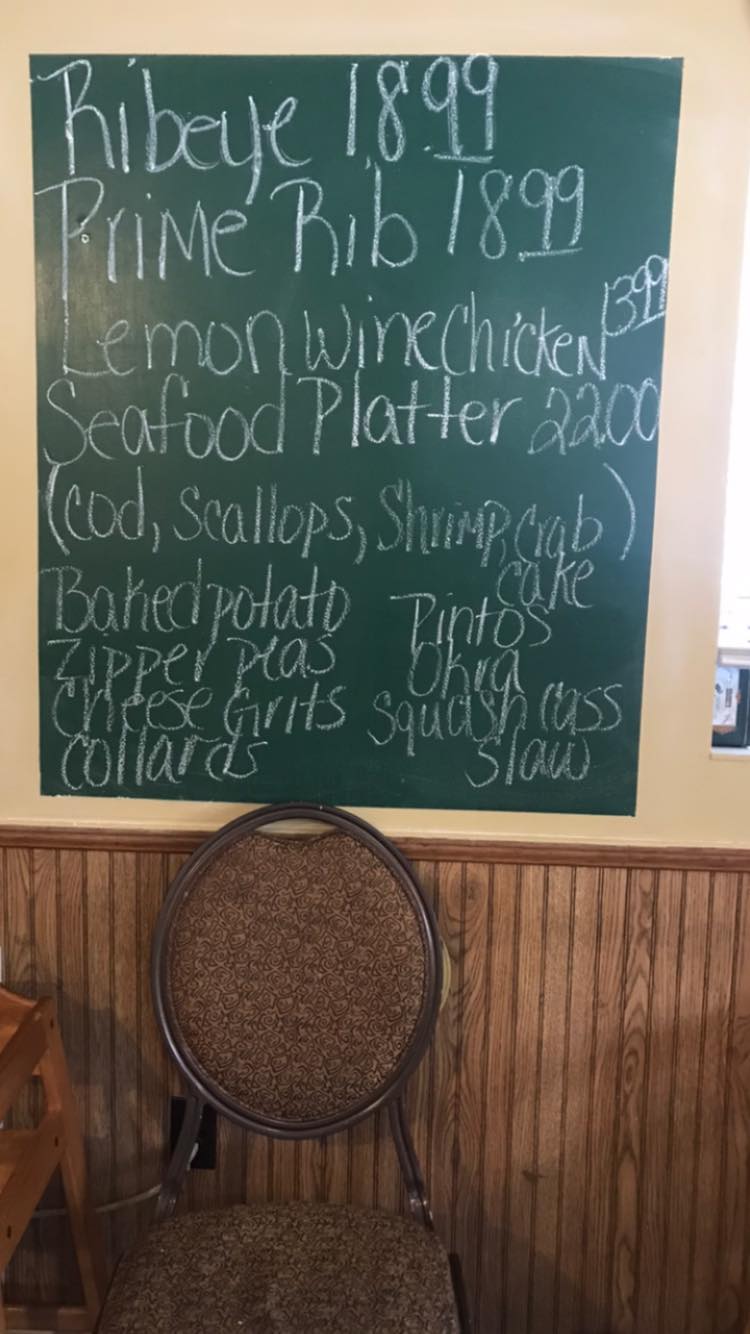 Ribeye 18.99
Prime Rib 18.99
Lemon Wine Chicken 13.99
Seafood Platter 22.00
(Cod, Scallops, Shrimp, Crab cake)
Baked potato
Zipper peas
Cheese Grits
Collards
Pintos
Okra
Squash Cass
Slaw